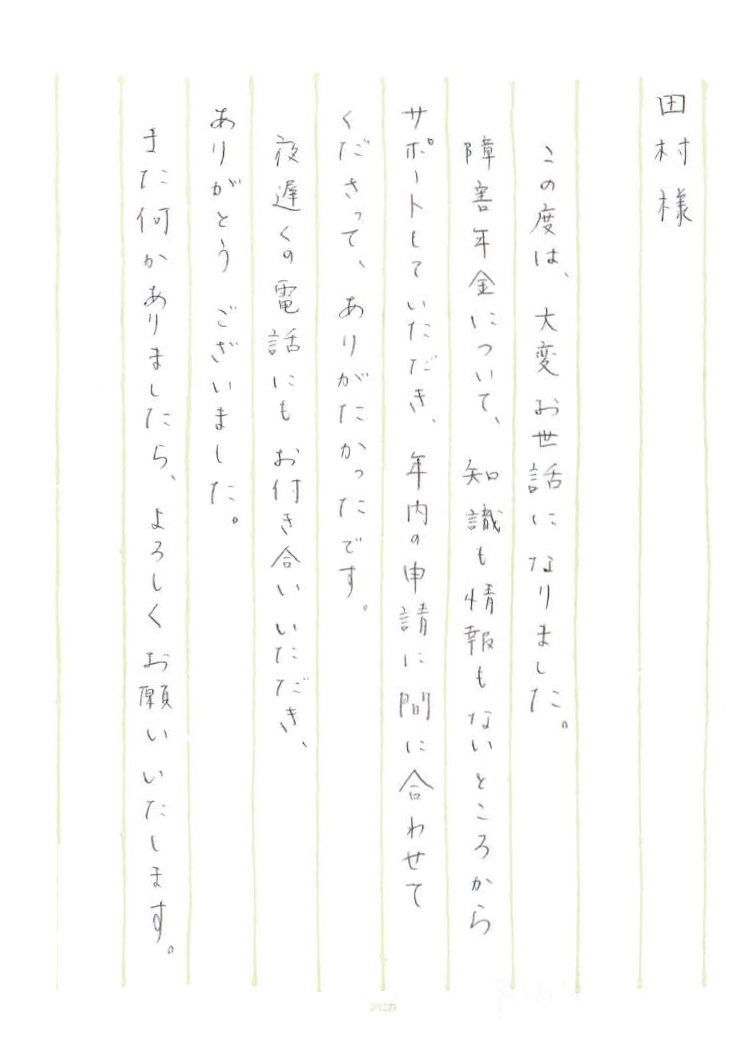 田村様
この度は、大変お世話になりました。
障害年金について、知識も情報もないところから
サポートしていただき、年内の申請に間に合わせて
くださって、ありがたかったです。
夜遅くの電話にもお付き合いいただき、
ありがとうございました。
また何かありましたら、よろしくお願いいたします。